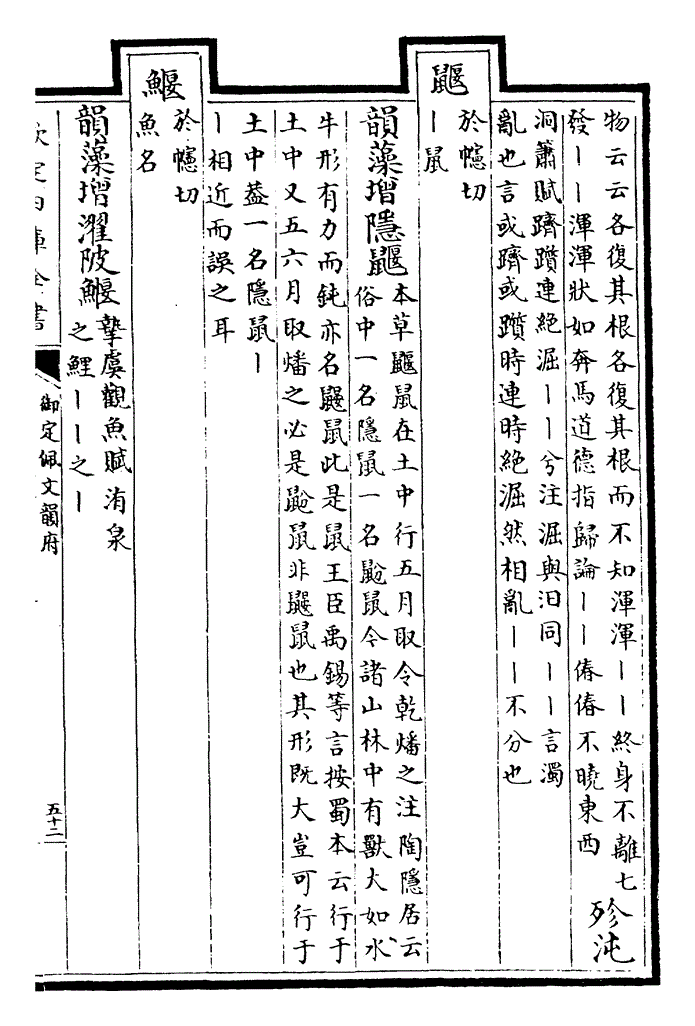 物云云各復其根各復其根而不知渾渾丨丨終身不離七
發丨丨渾渾狀如奔馬道德指歸論丨丨偆偆不曉東西
殄沌
洞簫賦躋躓連絕淈丨丨兮注淈與汩同丨丨言濁
亂也言或躋或躓時連時絕淈然相亂丨丨不分也
鼴
於幰切
丨鼠
韻藻增隱鼴
本草鼴鼠在土中行五月取令乾燔之注陶隱居云
俗中一名隱鼠一名鼢鼠今諸山林中有獸大如水
牛形有力而鈍亦名鼴鼠此是鼠王臣禹錫等言按蜀本云行于
土中又五六月取燔之必是鼢鼠非鼴鼠也其形既大豈可行于
土中葢一名隱鼠丨
丨相近而誤之耳
鰋
於幰切
魚名
韻藻增濯陂鰋
摯虞觀魚賦洧泉
之鯉丨丨之丨
欽定四庫全書
御定佩文韻府
五十二